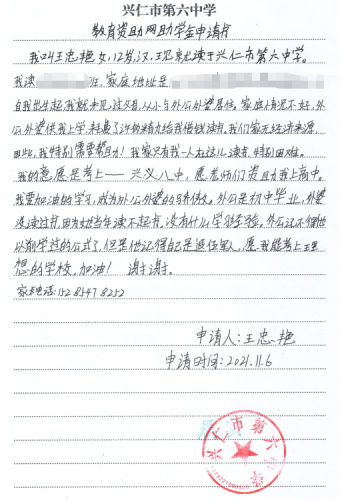 兴仁市第六中学
教育资助网助学金申请书
我叫王忠艳,女,12岁,汉,现就读于兴仁市第六中学。
我读 班,家庭地址是
自我出生起我就未见过父母,从小与外公外婆居住,家庭情况不好,外
公外婆供我上学,耗费了许多精力给我借钱读书,我们家无经济来源,
因此,我特别需要帮助!我家只有我一人在这儿读书,特别困难。
我的意愿是考上——兴义八中,愿老师们资助我上高中。
我要加油的学习,成为外公外婆的骄傲。外公是初中毕业,外婆
没读过书,因为她当年读不起书,没有什么学习经验。外公记不得他
以前学过的公式了,但是他记得自己是退伍军人,愿我能考上理
想的学校,加油!谢谢。
家长电话:152 8547 8252
申请人:王忠艳
申请时间:2021.11.6
兴仁市第六中学